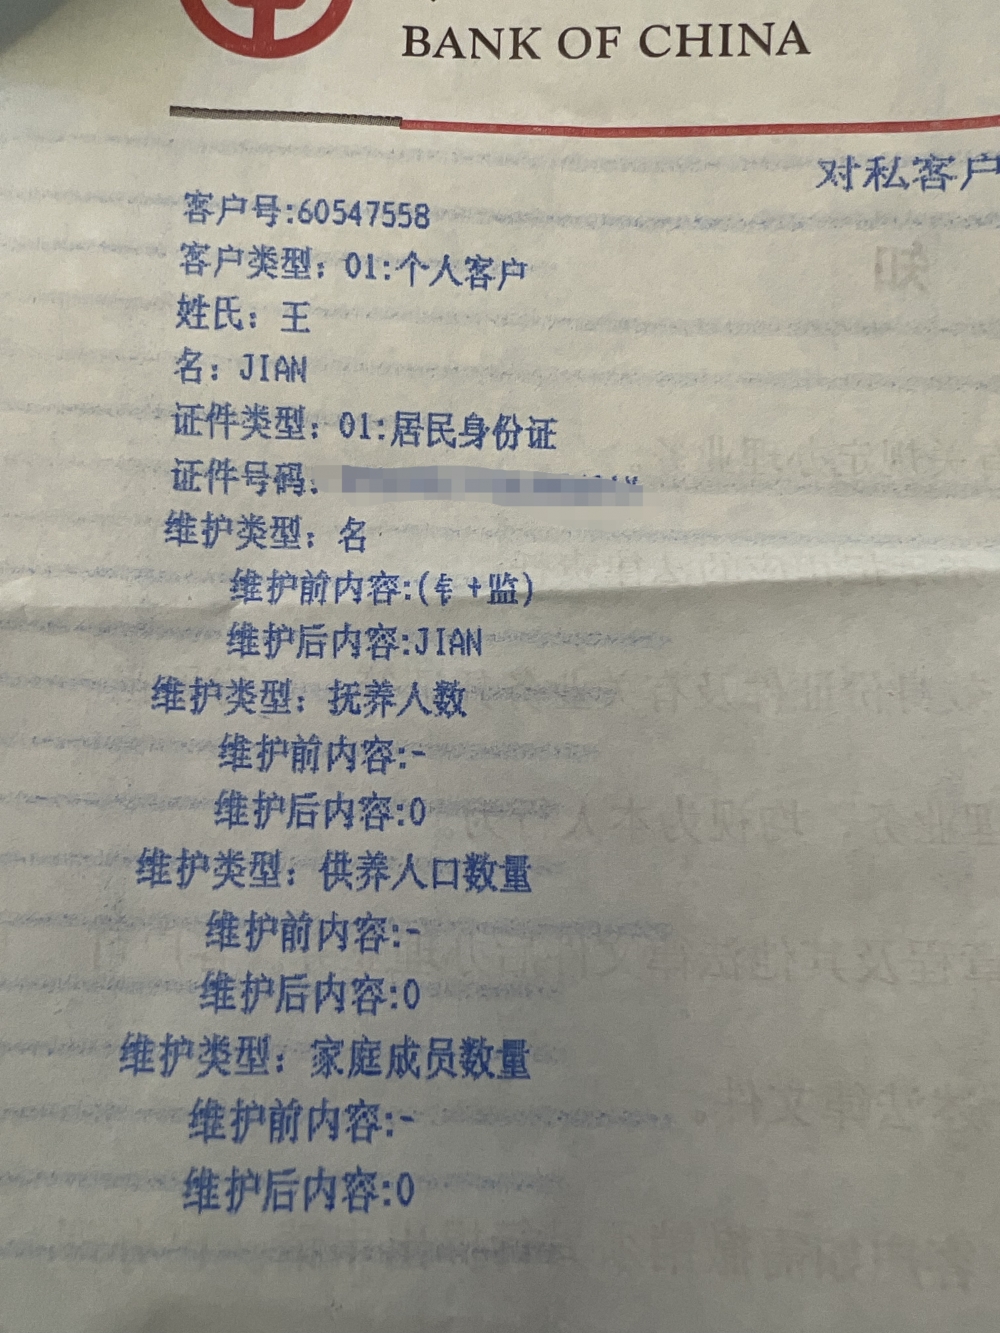 BANK OF CHINA
对私客户
客户号:60547558
客户类型：01:个人客户
姓氏：王
名：JIAN
证件类型：01:居民身份证
证件号码：
维护类型：名
维护前内容:(钅+监)
维护后内容:JIAN
维护类型：抚养人数
维护前内容:-
维护后内容:0
维护类型：供养人口数量
维护前内容:-
维护后内容:0
维护类型：家庭成员数量
维护前内容:-
维护后内容:0